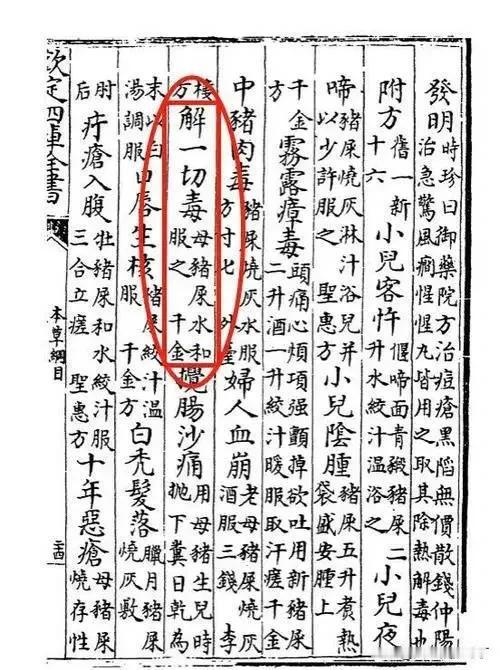 發明時珍曰御藥院方治痘瘡黑陷無價散錢仲陽治急驚風癇惺惺丸皆用之取其除熱解毒也
附方舊一新十六 小兒客忤偃啼面青緞豬屎二升水絞汁温浴之 小兒夜
啼豬屎燒灰淋汁浴兒并以少許服之 聖惠方 小兒陰腫豬屎五升煮熱袋盛安腫上
千金 霧露瘴毒頭痛心煩項强顫掉欲吐用新豬屎二升酒一升絞汁暖服取汗瘥千金
中豬肉毒豬屎燒灰水服方寸匕 外臺 婦人血崩老母豬屎燒灰酒服三錢 李
樓方 解一切毒母豬屎水和服之 千金 攪腸沙痛用母豬生兒時抛下糞日乾為
末以白湯調服 口唇生核豬屎絞汁温服 千金方 白秃髮落臘月豬屎燒灰敷
肘后 疔瘡入腹牡豬屎和水絞汁服三合立瘥 聖惠方 十年惡瘡母豬屎燒存性
欽定四庫全書
本草綱目